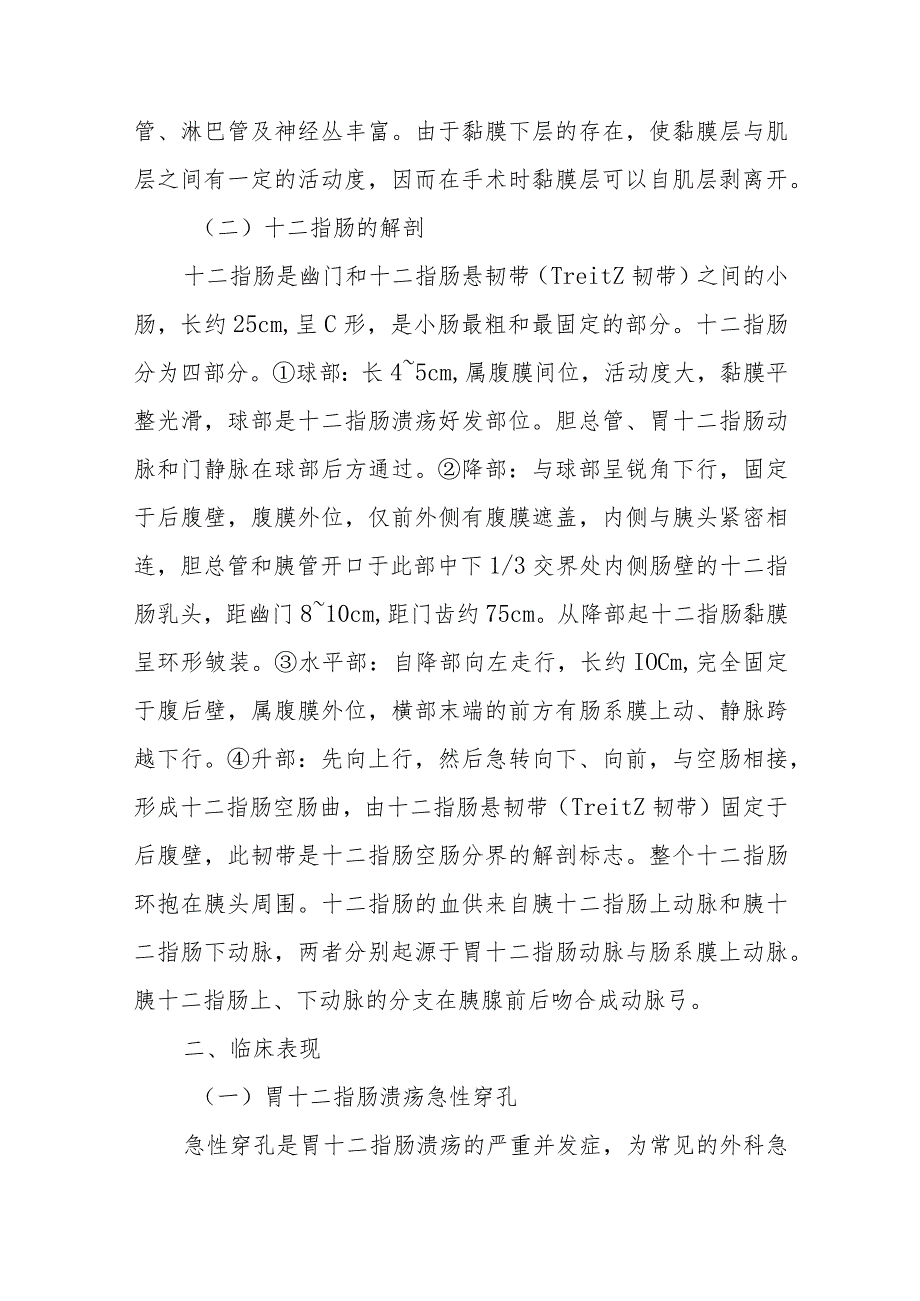 管、淋巴管及神经丛丰富。由于黏膜下层的存在，使黏膜层与肌
层之间有一定的活动度，因而在手术时黏膜层可以自肌层剥离开。
（二）十二指肠的解剖
十二指肠是幽门和十二指肠悬韧带（TreitZ韧带）之间的小
肠，长约25cm,呈C形，是小肠最粗和最固定的部分。十二指肠
分为四部分。①球部：长4~5cm,属腹膜间位，活动度大，黏膜平
整光滑，球部是十二指肠溃疡好发部位。胆总管、胃十二指肠动
脉和门静脉在球部后方通过。②降部：与球部呈锐角下行，固定
于后腹壁，腹膜外位，仅前外侧有腹膜遮盖，内侧与胰头紧密相
连，胆总管和胰管开口于此部中下1/3交界处内侧肠壁的十二指
肠乳头，距幽门8~10cm,距门齿约75cm。从降部起十二指肠黏膜
呈环形皱装。③水平部：自降部向左走行，长约IOCm,完全固定
于腹后壁，属腹膜外位，横部末端的前方有肠系膜上动、静脉跨
越下行。④升部：先向上行，然后急转向下、向前，与空肠相接，
形成十二指肠空肠曲，由十二指肠悬韧带（TreitZ韧带）固定于
后腹壁，此韧带是十二指肠空肠分界的解剖标志。整个十二指肠
环抱在胰头周围。十二指肠的血供来自胰十二指肠上动脉和胰十
二指肠下动脉，两者分别起源于胃十二指肠动脉与肠系膜上动脉。
胰十二指肠上、下动脉的分支在胰腺前后吻合成动脉弓。
二、临床表现
（一）胃十二指肠溃疡急性穿孔
急性穿孔是胃十二指肠溃疡的严重并发症，为常见的外科急